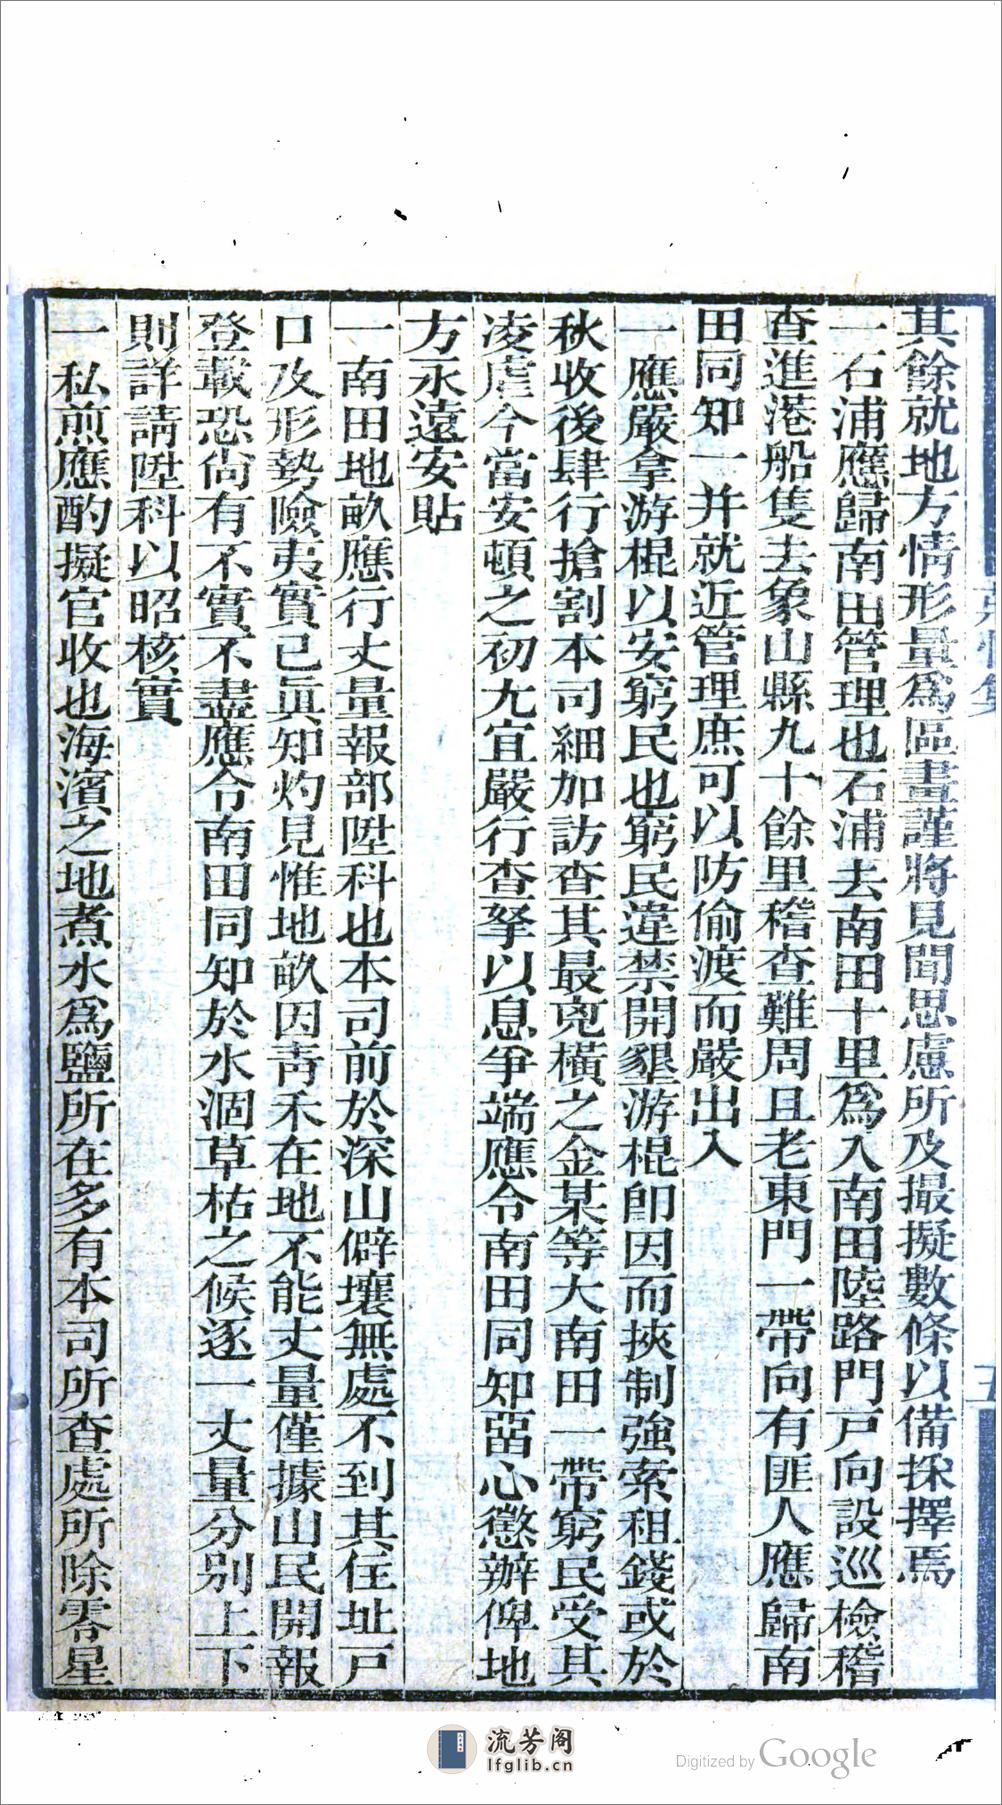 其餘就地方情形量爲區畫謹將見聞思慮所及撮擬數條以備採擇焉
一石浦應歸南田管理也石浦去南田十里爲入南田陸路門戶向設巡檢稽
查進港船隻去象山縣九十餘里稽查難周且老東門一帶向有匪人應歸南
田同知一并就近管理庶可以防偷渡而嚴出入
一應嚴拿游棍以安窮民也窮民違禁開墾游棍卽因而挾制強索租錢或於
秋收後肆行搶割本司細加訪查其最兇橫之金某等大南田一帶窮民受其
凌虐今當安頓之初尤宜嚴行查拏以息爭端應令南田同知畱心懲辦俾地
方永遠安貼
一南田地畝應行丈量報部陞科也本司前於深山僻壤無處不到其住址戸
口及形勢險夷實已眞知灼見惟地畝因靑禾在地不能丈量僅據山民開報
登載恐尙有不實不盡應令南田同知於水涸草枯之候逐一丈量分別上下
則詳請陞科以昭核實
一私煎應酌擬官收也海濱之地煮水爲鹽所在多有本司所查處所除零星
流芳阁
lfglib.cn
Digitized by Google